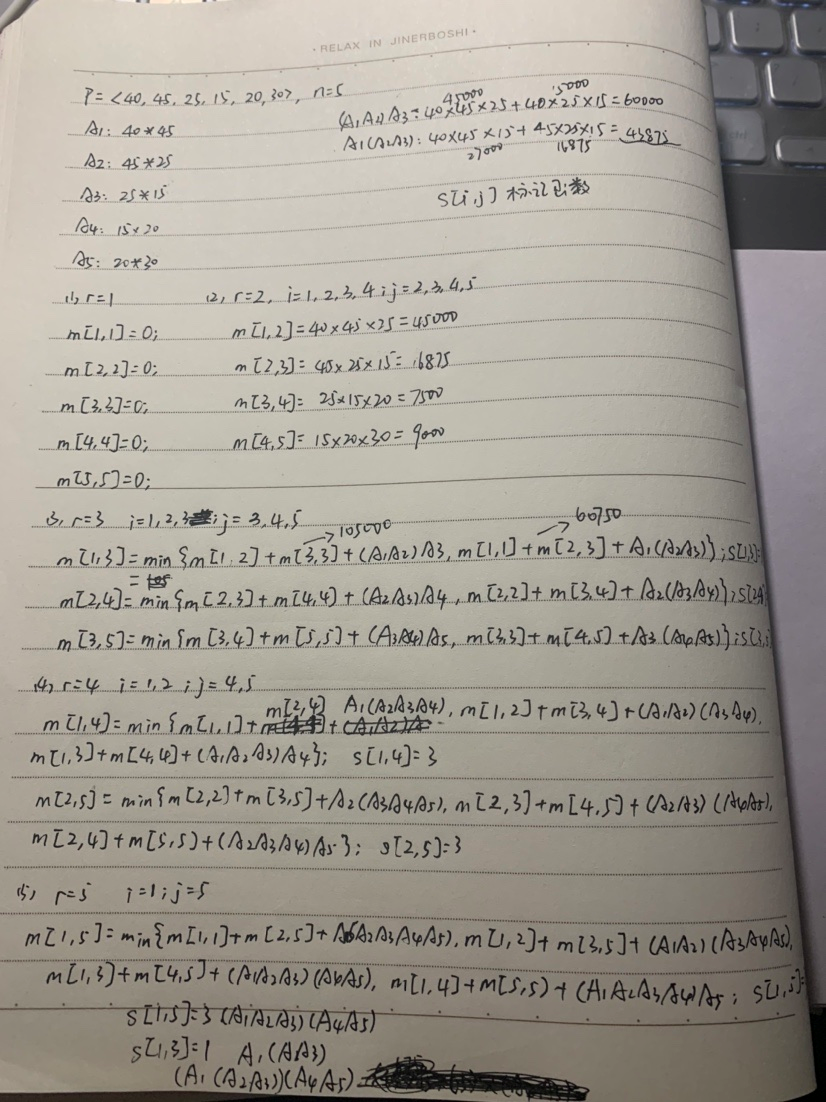 · RELAX IN JINERBOSHI ·
P = <40, 45, 25, 15, 20, 30>, n=5
45000 15000
(A1A2)A3: 40×45×25+40×25×15=60000
A1: 40*45
A1(A2A3): 40×45×15+45×25×15=43875
27000 16875
A2: 45*25
A3: 25*15
S[i,j] 标记函数
A4: 15×20
A5: 20*30
(1), r=1 (2), r=2, i=1,2,3,4; j=2,3,4,5
m[1,1]=0; m[1,2]=40×45×25=45000
m[2,2]=0; m[2,3]=45×25×15=16875
m[3,3]=0; m[3,4]=25×15×20=7500
m[4,4]=0; m[4,5]=15×20×30=9000
m[5,5]=0;
(3), r=3 i=1,2,3; j=3,4,5
→105000 →60750
m[1,3]=min{m[1,2]+m[3,3]+(A1A2)A3, m[1,1]+m[2,3]+A1(A2A3)}; S[1,3]=
m[2,4]=min{m[2,3]+m[4,4]+(A2A3)A4, m[2,2]+m[3,4]+A2(A3A4)}; S[2,4]
m[3,5]=min{m[3,4]+m[5,5]+(A3A4)A5, m[3,3]+m[4,5]+A3(A4A5)}; S[3,
(4), r=4 i=1,2; j=4,5
m[1,4]=min{m[1,1]+m[2,4]+A1(A2A3A4), m[1,2]+m[3,4]+(A1A2)(A3A4),
m[1,3]+m[4,4]+(A1A2A3)A4}; S[1,4]=3
m[2,5]=min{m[2,2]+m[3,5]+A2(A3A4A5), m[2,3]+m[4,5]+(A2A3)(A4A5),
m[2,4]+m[5,5]+(A2A3A4)A5}; S[2,5]=3
(5), r=5 i=1; j=5
m[1,5]=min{m[1,1]+m[2,5]+A1(A2A3A4A5), m[1,2]+m[3,5]+(A1A2)(A3A4A5),
m[1,3]+m[4,5]+(A1A2A3)(A4A5), m[1,4]+m[5,5]+(A1A2A3A4)A5; S[1,5]=
S[1,5]=3 (A1A2A3)(A4A5)
S[1,3]=1 A1(A2A3)
(A1(A2A3))(A4A5)